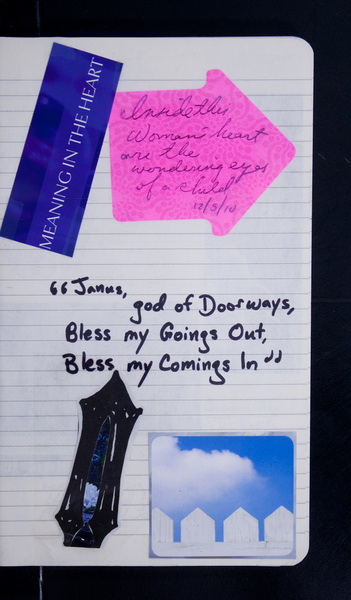 MEANING IN THE HEART
Inside this
Woman's heart
are the
wondering eyes
of a child
12/5/10
"Janus,
god of Doorways,
Bless my Goings Out,
Bless my Comings In"